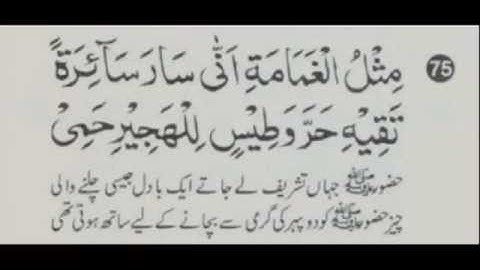 75 مِثْلُ الْغَمَامَةِ اَنّٰى سَارَ سَآئِرَةً
تَقِيْهِ حَرَّ وَطِيْسٍ لِلْهَجِيْرِ حَمِىْ
حضور ﷺ جہاں تشریف لے جاتے ایک بادل جیسی چلنے والی
چیز حضور ﷺ کو دوپہر کی گرمی سے بچانے کے لیے ساتھ ہوتی تھی